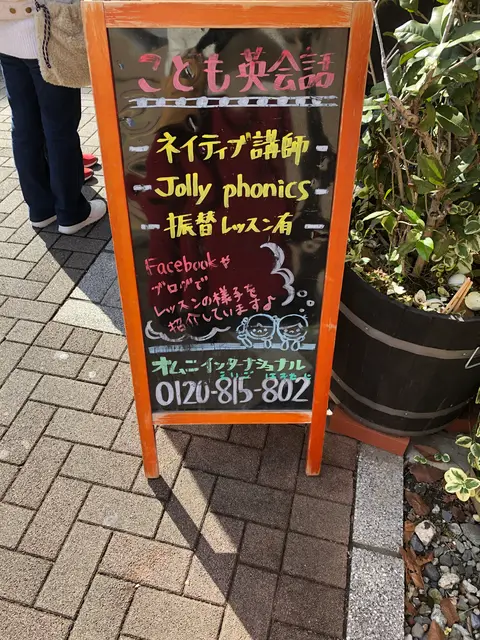 こども英会話
ネイティブ講師
Jolly phonics
振替レッスン有
Facebookや
ブログで
レッスンの様子を
紹介していますよ
オムニインターナショナル
えいご はなそーに
0120-815-802